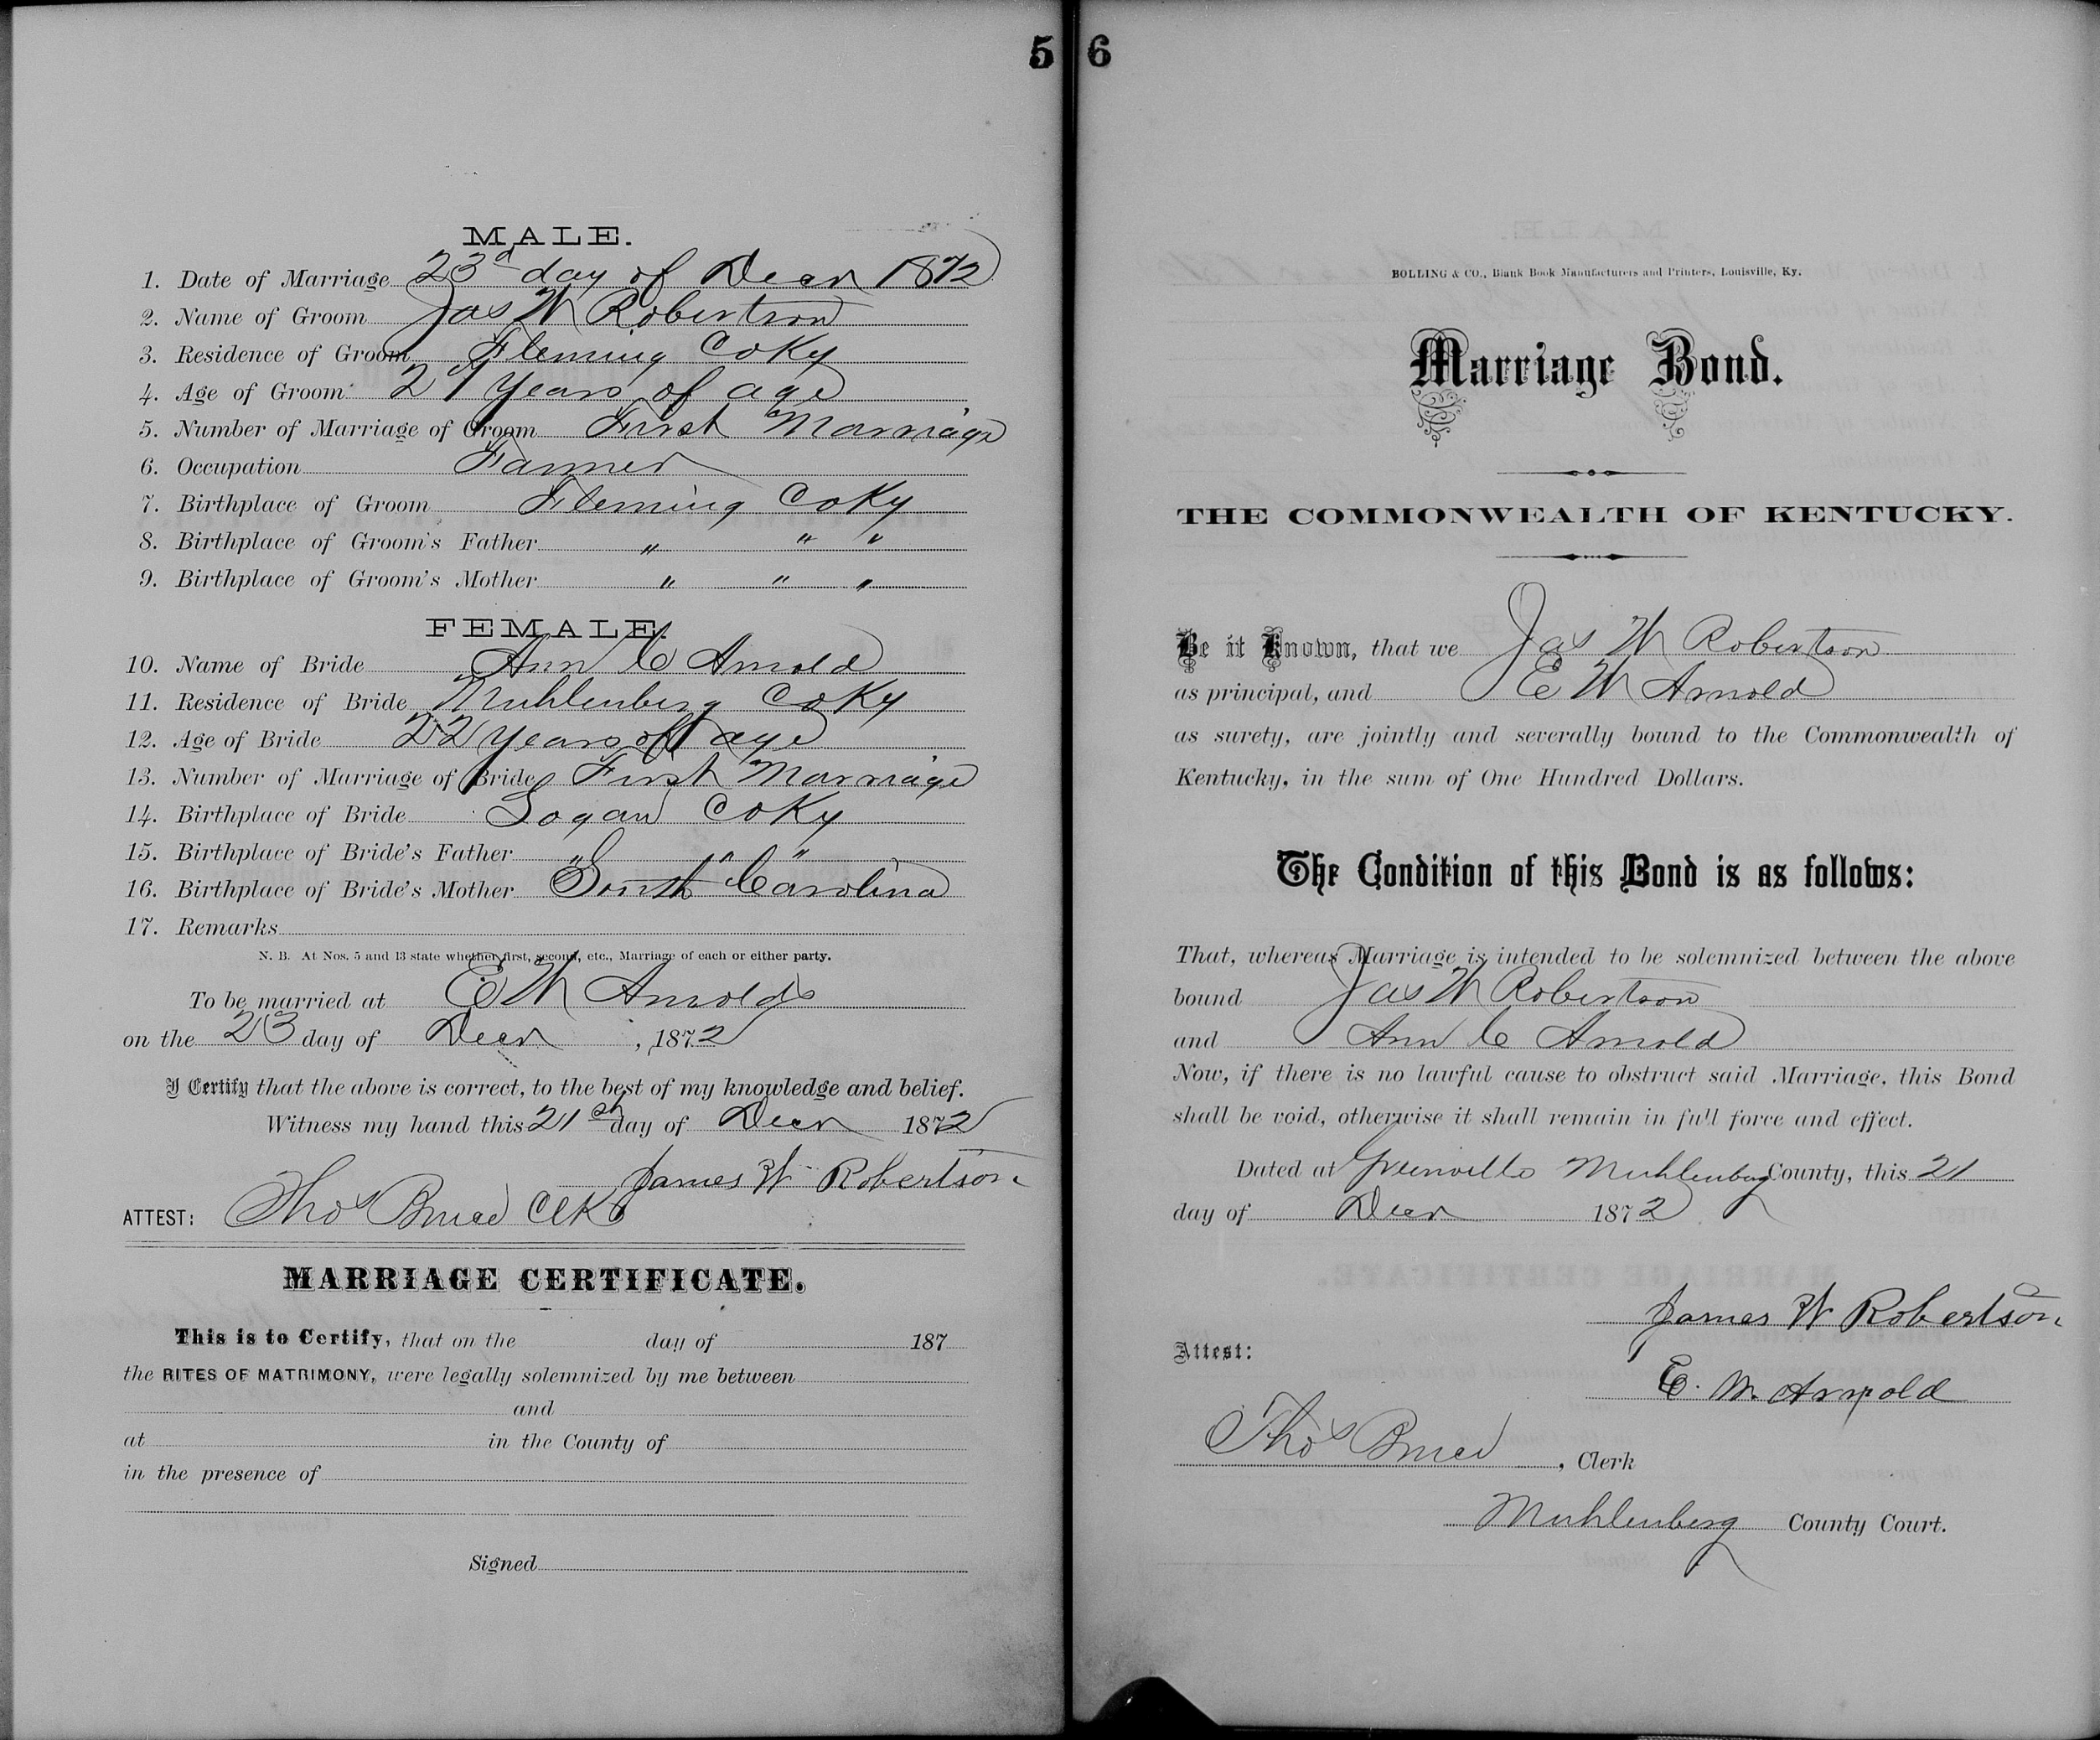 5
MALE.
1. Date of Marriage 23d day of Decr 1872
2. Name of Groom Jas W Robertson
3. Residence of Groom Fleming Co Ky
4. Age of Groom 27 years of age
5. Number of Marriage of Groom First Marriage
6. Occupation Farmer
7. Birthplace of Groom Fleming Co Ky
8. Birthplace of Groom's Father " " "
9. Birthplace of Groom's Mother " " "
FEMALE.
10. Name of Bride Ann C Arnold
11. Residence of Bride Muhlenberg Co Ky
12. Age of Bride 22 years of age
13. Number of Marriage of Bride First Marriage
14. Birthplace of Bride Logan Co Ky
15. Birthplace of Bride's Father " " "
16. Birthplace of Bride's Mother South Carolina
17. Remarks
N. B. At Nos. 5 and 13 state whether first, second, etc., Marriage of each or either party.
To be married at E W Arnolds
on the 23 day of Decr, 1872
I Certify that the above is correct, to the best of my knowledge and belief.
Witness my hand this 21st day of Decr 1872
James W Robertson
ATTEST: Thos Bruce Clk
MARRIAGE CERTIFICATE.
This is to Certify, that on the day of 187
the RITES OF MATRIMONY, were legally solemnized by me between
and
at in the County of
in the presence of
Signed
6
BOLLING & CO., Blank Book Manufacturers and Printers, Louisville, Ky.
Marriage Bond.
THE COMMONWEALTH OF KENTUCKY.
Be it Known, that we Jas W Robertson
as principal, and E W Arnold
as surety, are jointly and severally bound to the Commonwealth of
Kentucky, in the sum of One Hundred Dollars.
The Condition of this Bond is as follows:
That, whereas Marriage is intended to be solemnized between the above
bound Jas W Robertson
and Ann C Arnold
Now, if there is no lawful cause to obstruct said Marriage, this Bond
shall be void, otherwise it shall remain in full force and effect.
Dated at Greenville Muhlenberg County, this 21
day of Decr 1872
James W Robertson
Attest:
E. W. Arnold
Thos Bruce, Clerk
Muhlenberg County Court.